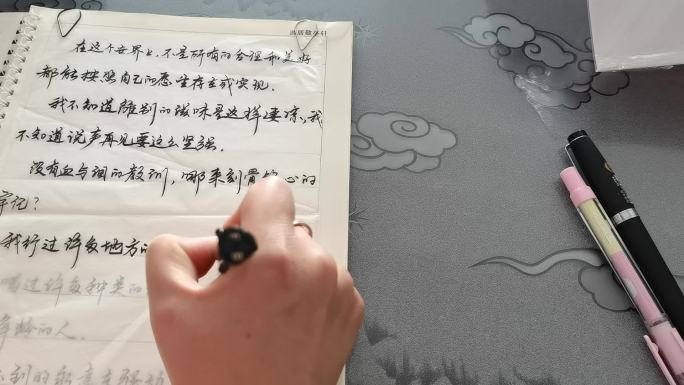 在这个世界上,不是所有的合理和美好
都能按照自己的愿望存在或实现.
我不知道离别的滋味是这样凄凉,我
不知道说声再见要这么坚强.
没有血与泪的教训,哪来刻骨 心的
牢记?
我行过许多地方的
喝过许多种类的
年龄的人.